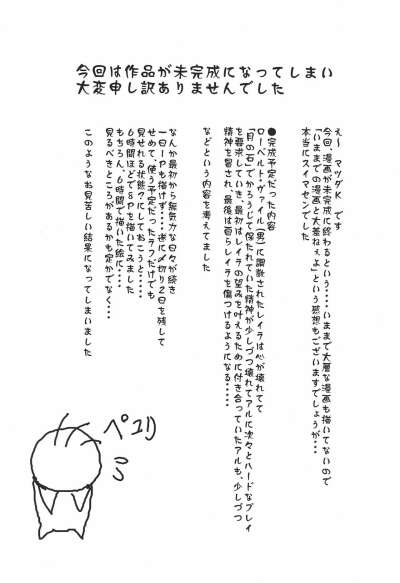 今回は作品が未完成になってしまい
大変申し訳ありませんでした
え～ マツダK です
今回、漫画が未完成に終わるという・・・・いままで大層な漫画も描いてないので
「いままでの漫画と大差ねぇよ」という感想もございますでしょうが・・・
本当にスイマセンでした
●完成予定だった内容
ローベルト・ヴァイル(男)に調教されたレイラは心が壊れてて
「月の石」でかろうじて保たれていた精神が少しづつ壊れてアルに次々とハードなプレイ
を要求していき、最初はレイラの望みを叶えるために付き合っていたアルも、少しづつ
精神を冒され、最後は自らレイラを傷つけるようになる・・・・・
などという内容を考えてました
なんか最初から無気力な日々が続き
一日1Pも描けず・・・・遂に〆切り2日を残して
せめて、使う予定だったラフだけでも
見せれる状態クにしておこうと・・・・
6時間ほどで8Pを描いてみました
もちろん、6時間で描いた絵に・・・・
見るべきところがあるかも定かでなく・・・
このようなお見苦しい結果になってしまいました
ペコリ